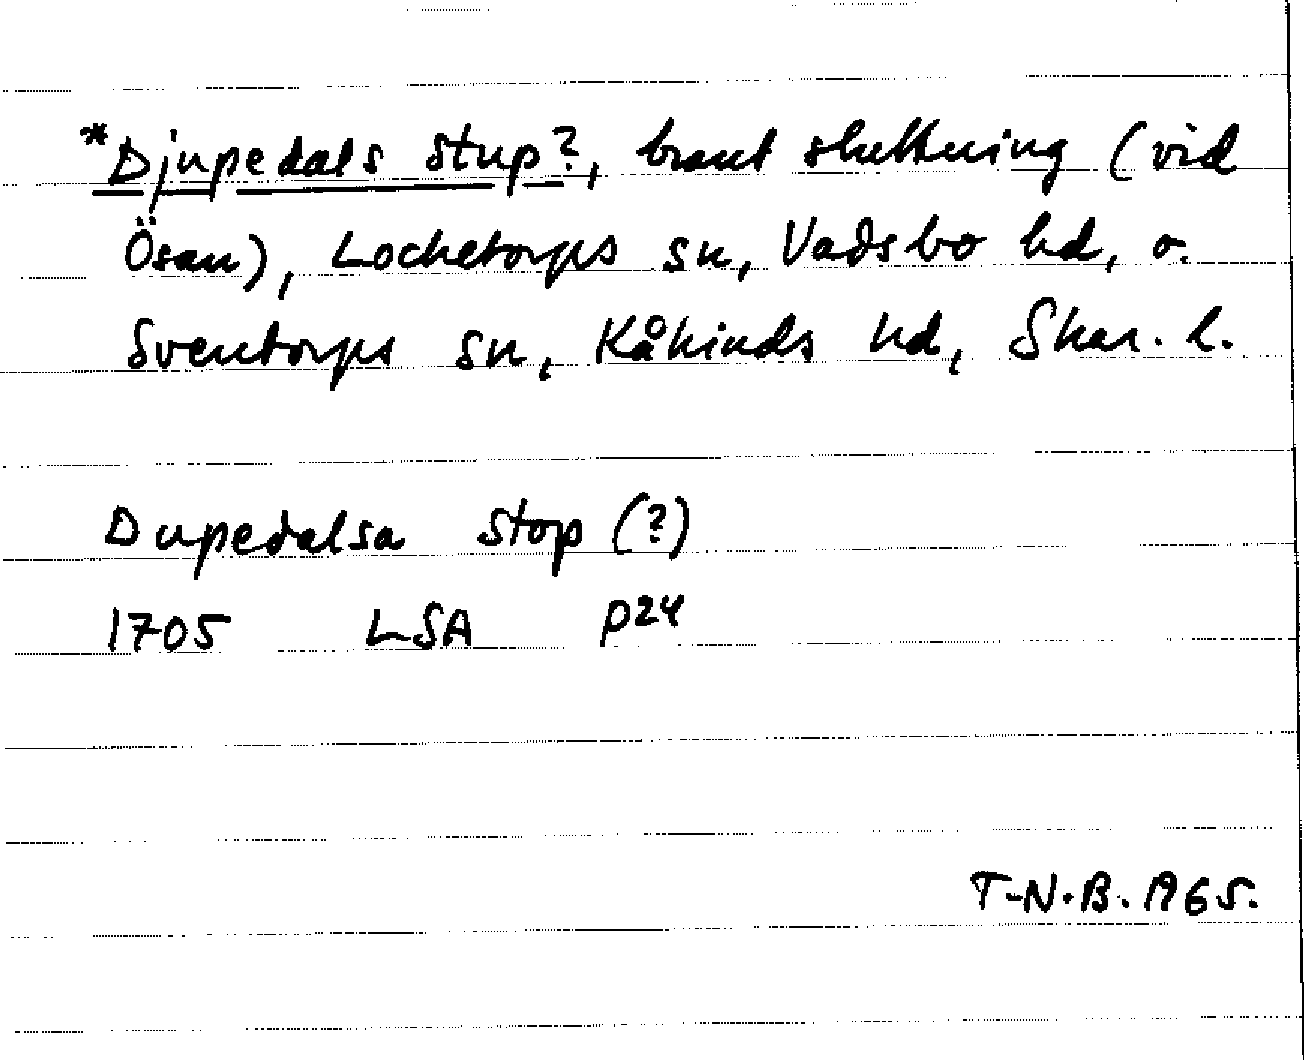 *Djupedals stup?, brant sluttning (vid
Ösan), Locketorps sn, Vadsbo hd, o.
Sventorps sn, Kåkinds hd, Skar. l.
Dupedalsa stop (?)
1705 LSA P24
T-N.B. 1965.